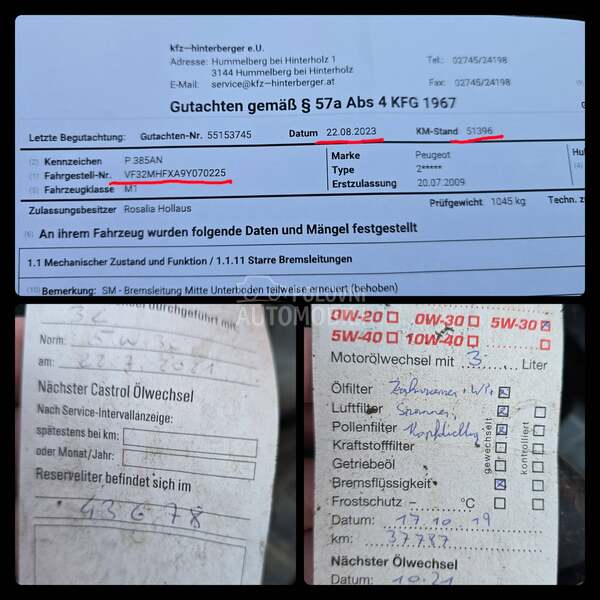 kfz-hinterberger e.U.
Adresse: Hummelberg bei Hinterholz 1
3144 Hummelberg bei Hinterholz
E-Mail: service@kfz-hinterberger.at
Tel.: 02745/24198
Fax: 02745/24198
Gutachten gemäß § 57a Abs 4 KFG 1967
Letzte Begutachtung: Gutachten-Nr. 55153745 Datum 22.08.2023 KM-Stand 51396
(2) Kennzeichen P 385AN
(1) Fahrgestell-Nr. VF32MHFXA9Y070225
(5) Fahrzeugklasse M1
Marke Peugeot
Type 2*****
Erstzulassung 20.07.2009
Zulassungsbesitzer Rosalia Hollaus Prüfgewicht 1045 kg Techn. z
(6) An ihrem Fahrzeug wurden folgende Daten und Mängel festgestellt
1.1 Mechanischer Zustand und Funktion / 1.1.11 Starre Bremsleitungen
(10) Bemerkung: SM - Bremsleitung Mitte Unterboden teilweise erneuert (behoben)
POLOVNI
AUTOMOBILI
durchgeführt mit:
Norm: 5W30
am: 22.7.2021
Nächster Castrol Ölwechsel
Nach Service-Intervallanzeige:
spätestens bei km:
oder Monat/Jahr:
Reserveliter befindet sich im
43678
0W-20 0W-30 5W-30
5W-40 10W-40
Motorölwechsel mit 3 Liter
Ölfilter
Luftfilter
Pollenfilter
Kraftstofffilter
Getriebeöl
Bremsflüssigkeit
Frostschutz – °C
gewechselt
kontrolliert
Datum: 17.10.19
km: 37787
Nächster Ölwechsel
Datum: 10.21